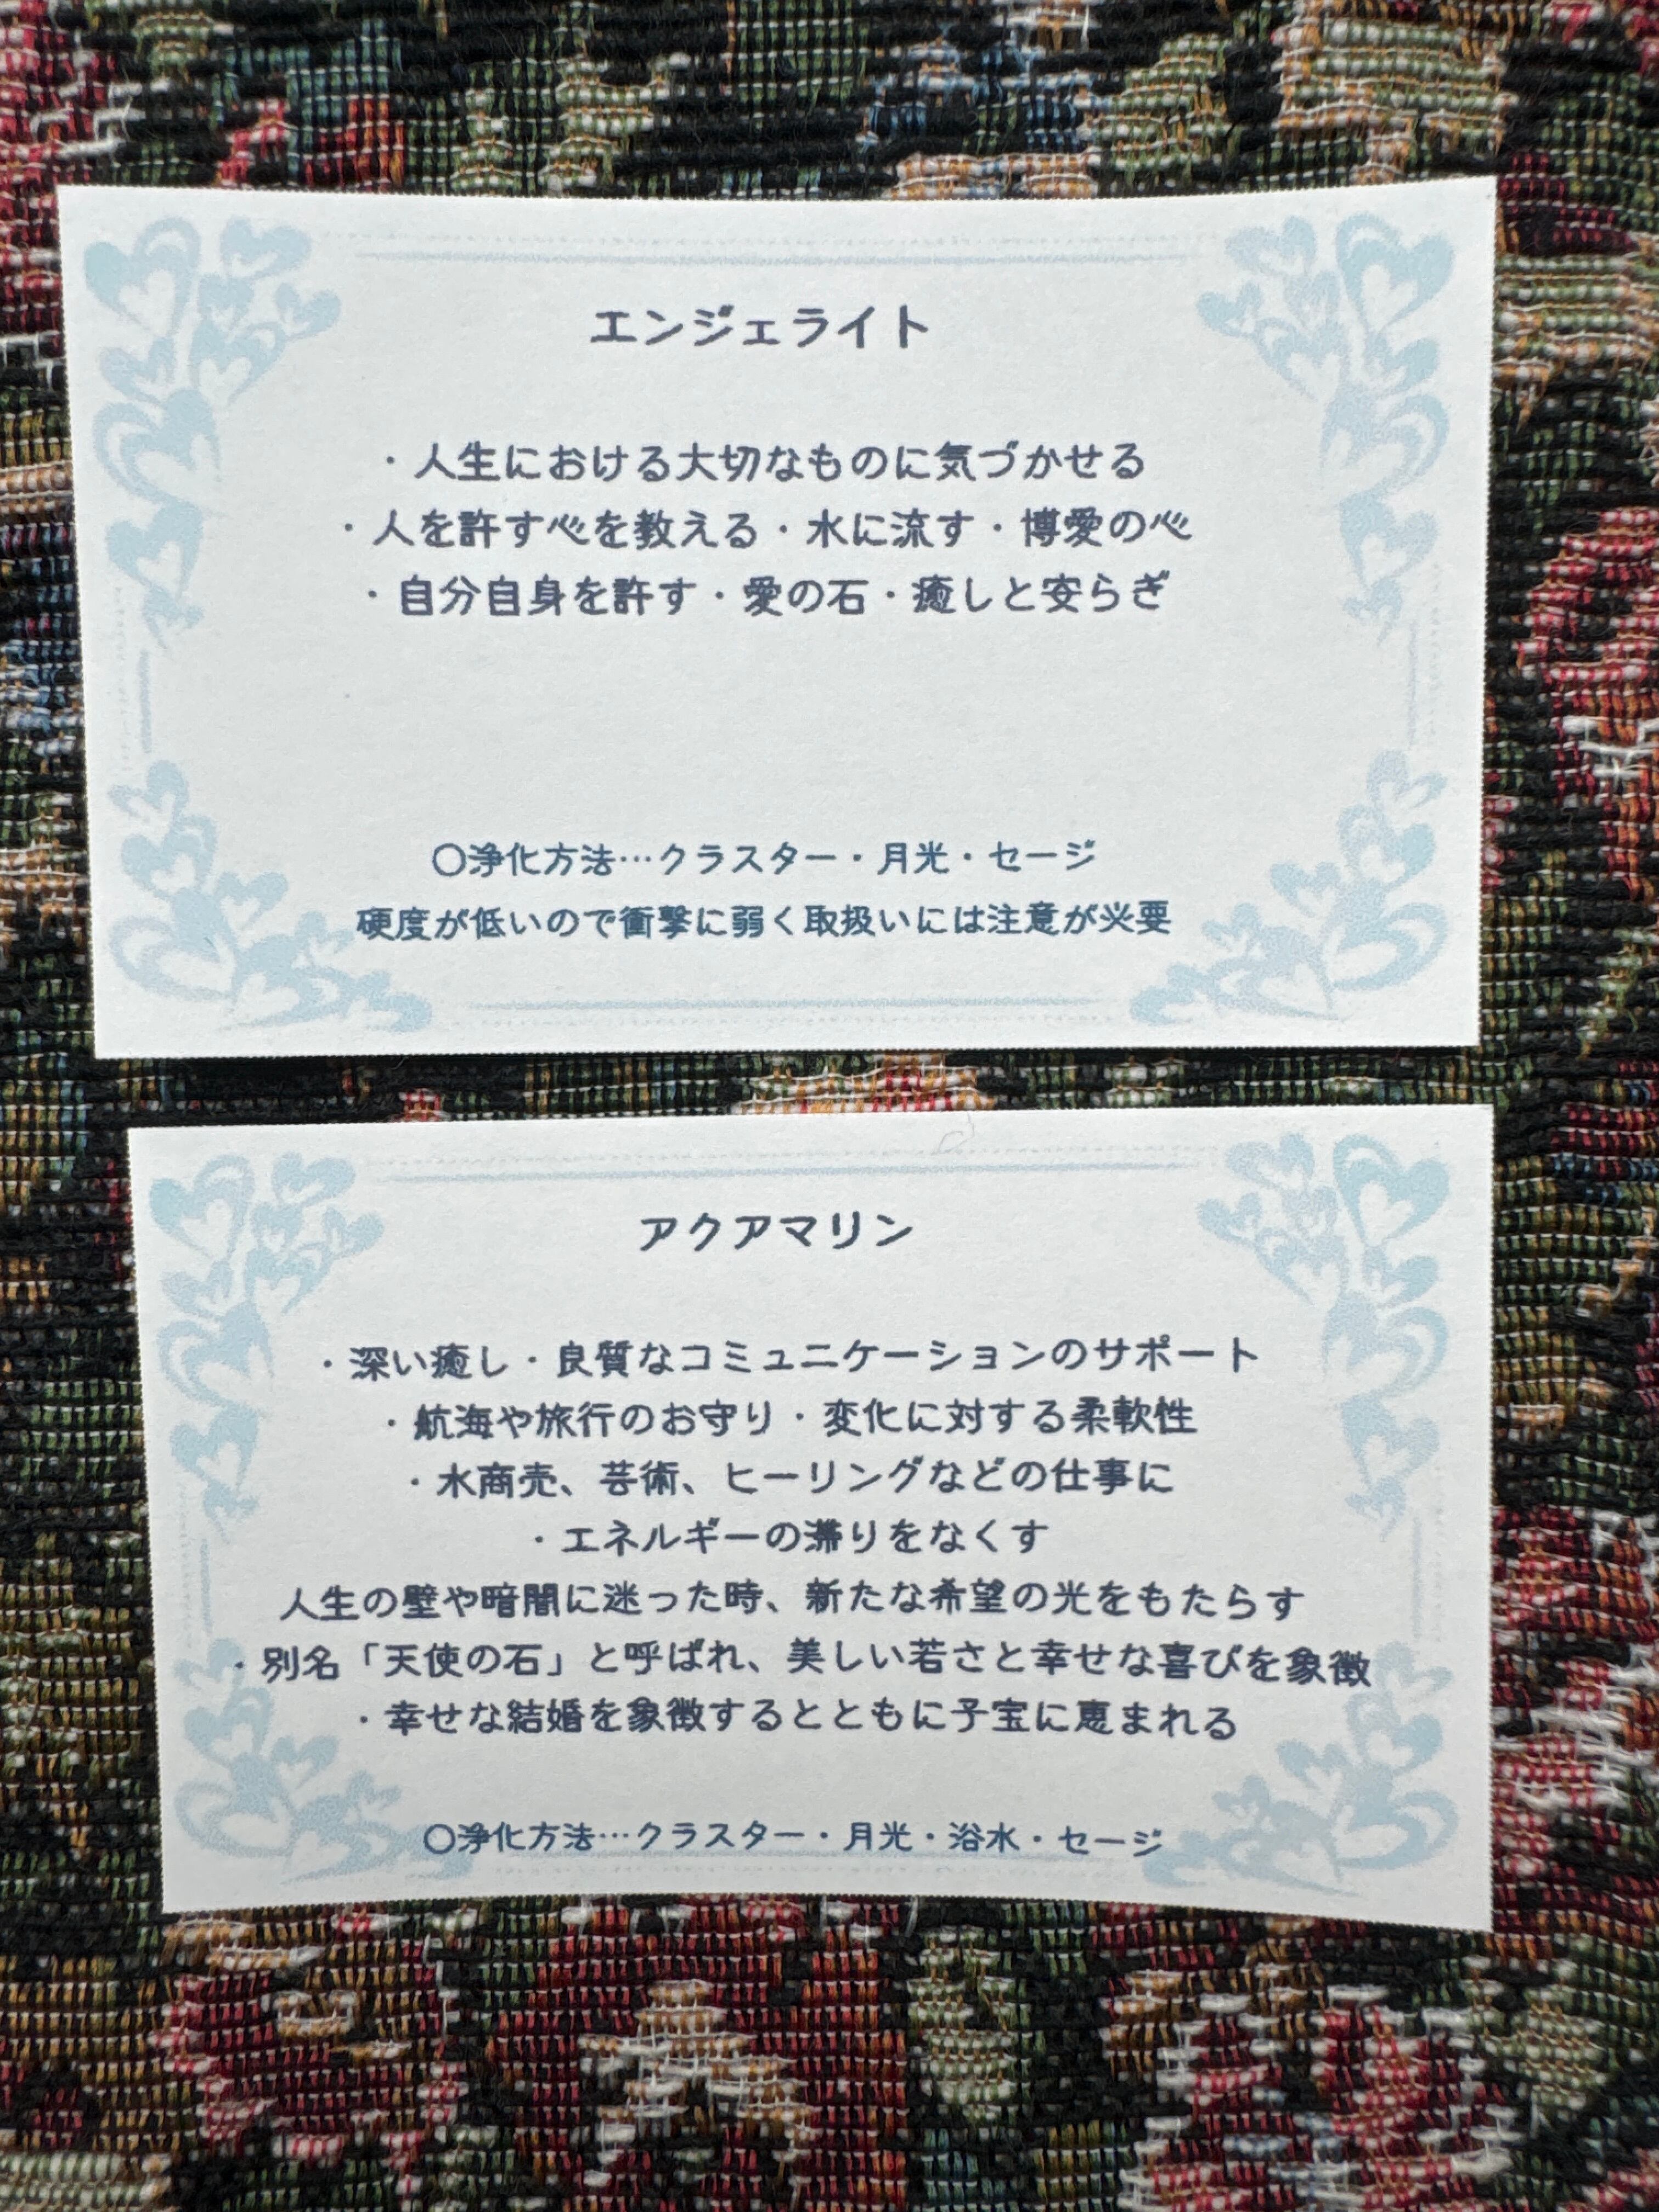 エンジェライト
・人生における大切なものに気づかせる
・人を許す心を教える・水に流す・博愛の心
・自分自身を許す・愛の石・癒しと安らぎ
〇浄化方法…クラスター・月光・セージ
硬度が低いので衝撃に弱く取扱いには注意が必要
アクアマリン
・深い癒し・良質なコミュニケーションのサポート
・航海や旅行のお守り・変化に対する柔軟性
・水商売、芸術、ヒーリングなどの仕事に
・エネルギーの滞りをなくす
人生の壁や暗闇に迷った時、新たな希望の光をもたらす
・別名「天使の石」と呼ばれ、美しい若さと幸せな喜びを象徴
・幸せな結婚を象徴するとともに子宝に恵まれる
〇浄化方法…クラスター・月光・浴水・セージ